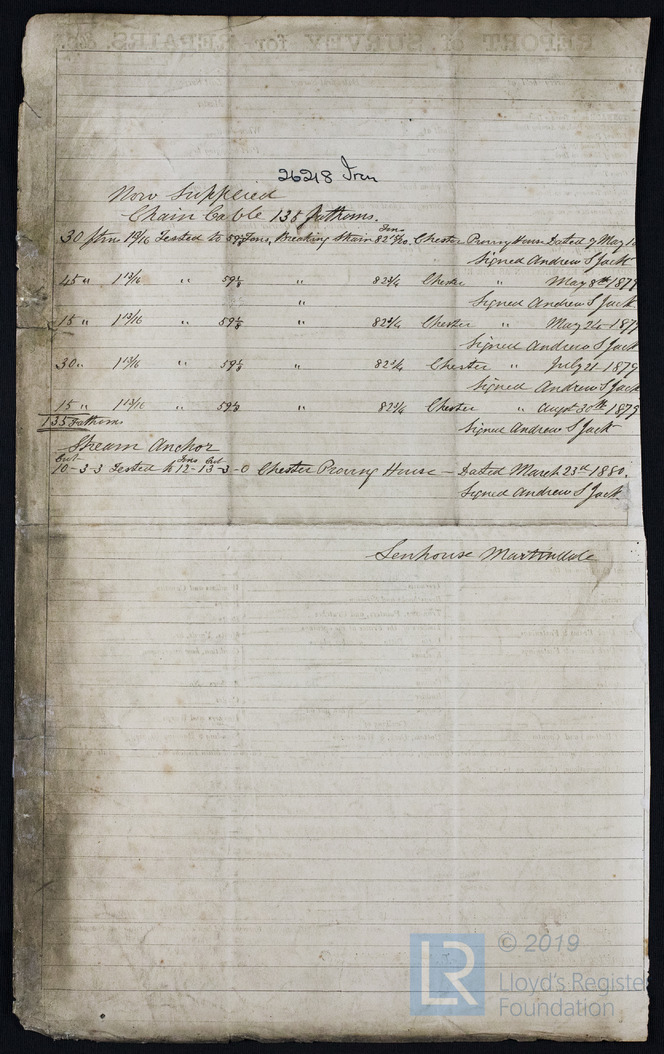 2628 Iron
Now Supplied
Chain Cable 135 fathoms.
30 ftms 1 13/16 Tested to 59 1/8 Tons, Breaking Strain 82 Tons Chester Proving House Dated 7 May 1
Signed Andrew S Jack
45 " 1 13/16 " 59 1/8 " 82 3/4 Chester " May 8th 1879
" Signed Andrew S Jack
15 " 1 13/16 " 59 1/8 " 82 3/4 Chester " May 24 1879
Signed Andrew S Jack
30 " 1 13/16 " 59 1/8 " 82 3/4 Chester " July 21 1879
Signed Andrew S Jack
15 " 1 13/16 " 59 1/8 " 82 3/4 Chester " Augst 30th 1879
135 Fathoms
Signed Andrew S Jack
Stream Anchor
Cwt Tons Cwt
10-3-3 Tested to 12-13-3-0 Chester Proving House - Dated March 23rd 1880.
Signed Andrew S Jack.
Senhouse Martindale
LR © 2019
Lloyd's Registe
Foundation